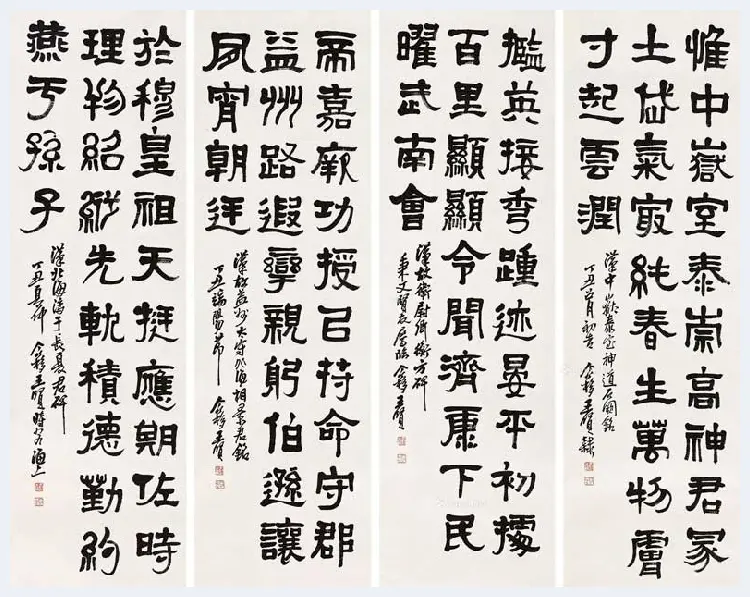 惟中嶽室泰崇高神君冢
土岱氣最純春生萬物膚
寸起雲潤
漢中嶽泰室神道石闕銘
丁丑六月初吉 个簃王賢隸
攬英接秀踵迹晏平初據
百里顯顯令聞濟康下民
曜武南會
漢故衛尉卿衡方碑
个簃王賢
帝嘉厥功授㠯符命守郡
益州路遐孿親躬伯遜讓
夙宵朝廷
漢故益州大守北海相景君銘
丁丑端陽節 个簃王賢
於穆皇祖天挺應期佐時
理物紹縱先軌積德勤約
燕于孫子
漢北海淳于長夏君碑
丁丑夏仲 个簃王賢時客滬上